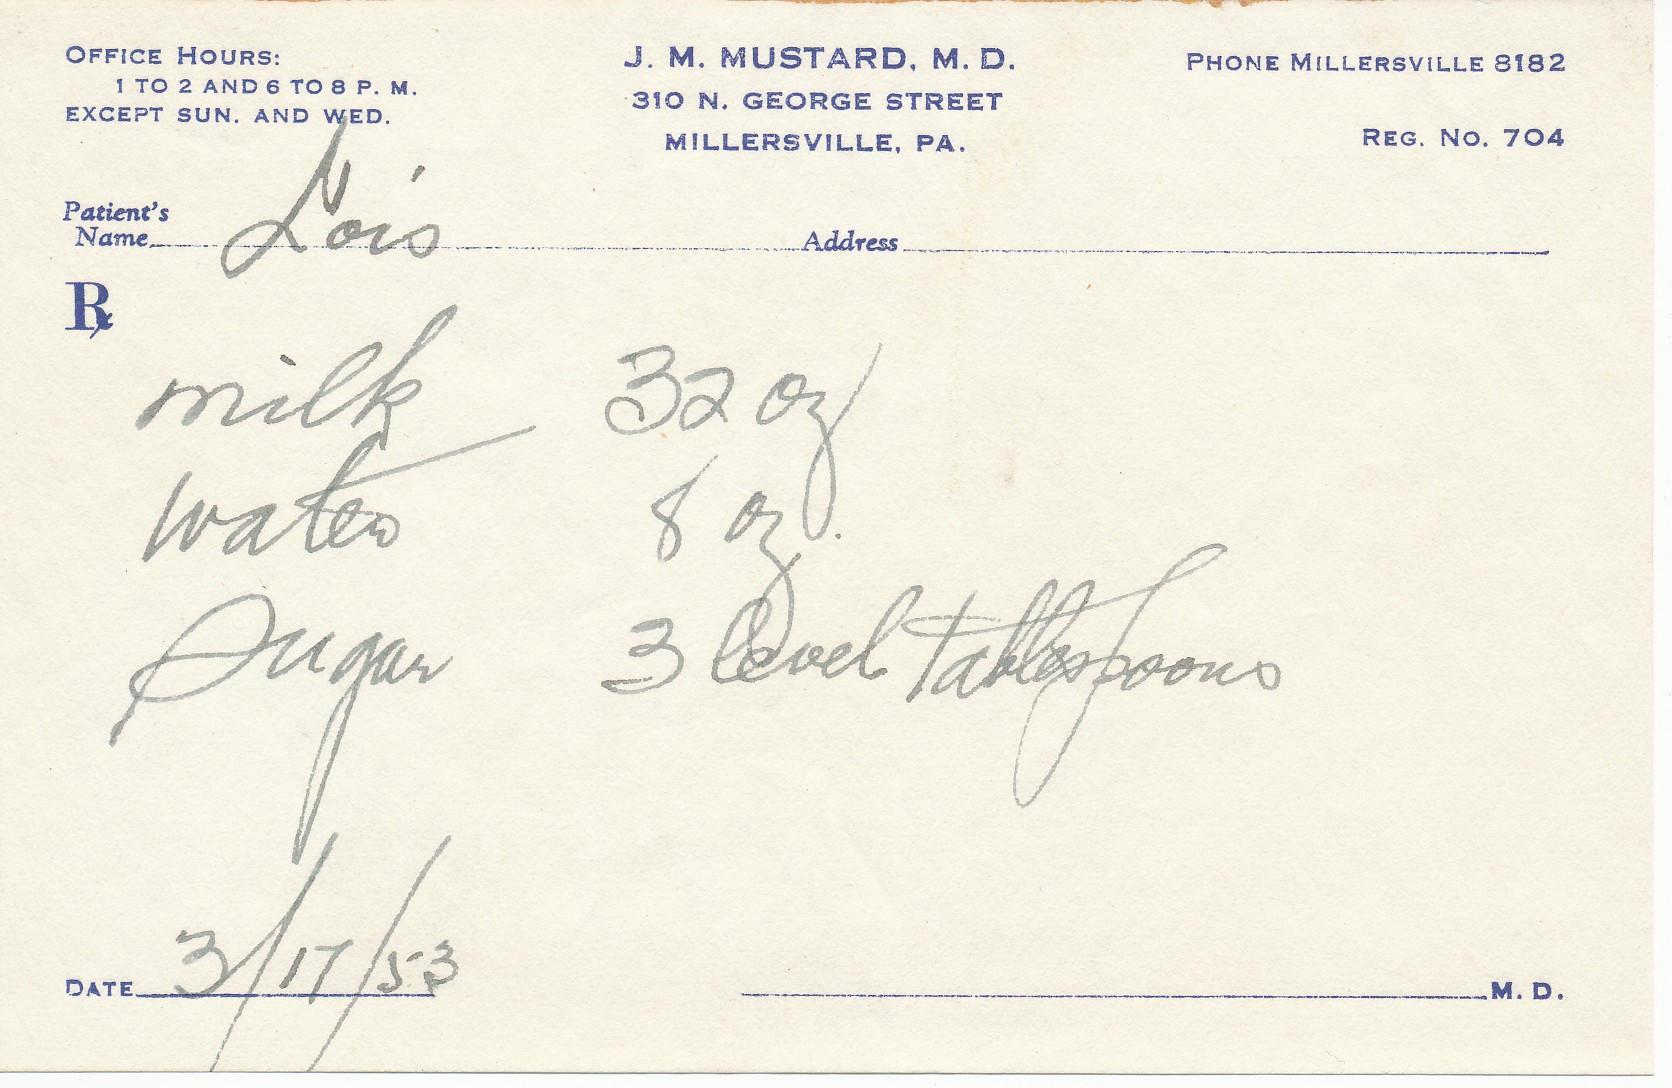 OFFICE HOURS:
1 TO 2 AND 6 TO 8 P. M.
EXCEPT SUN. AND WED.
J. M. MUSTARD, M. D.
310 N. GEORGE STREET
MILLERSVILLE, PA.
PHONE MILLERSVILLE 8182
REG. NO. 704
Patient's
Name Lois Address
Rx
milk 32 oz
water 8 oz.
Sugar 3 level tablespoons
DATE 3/17/53 M. D.